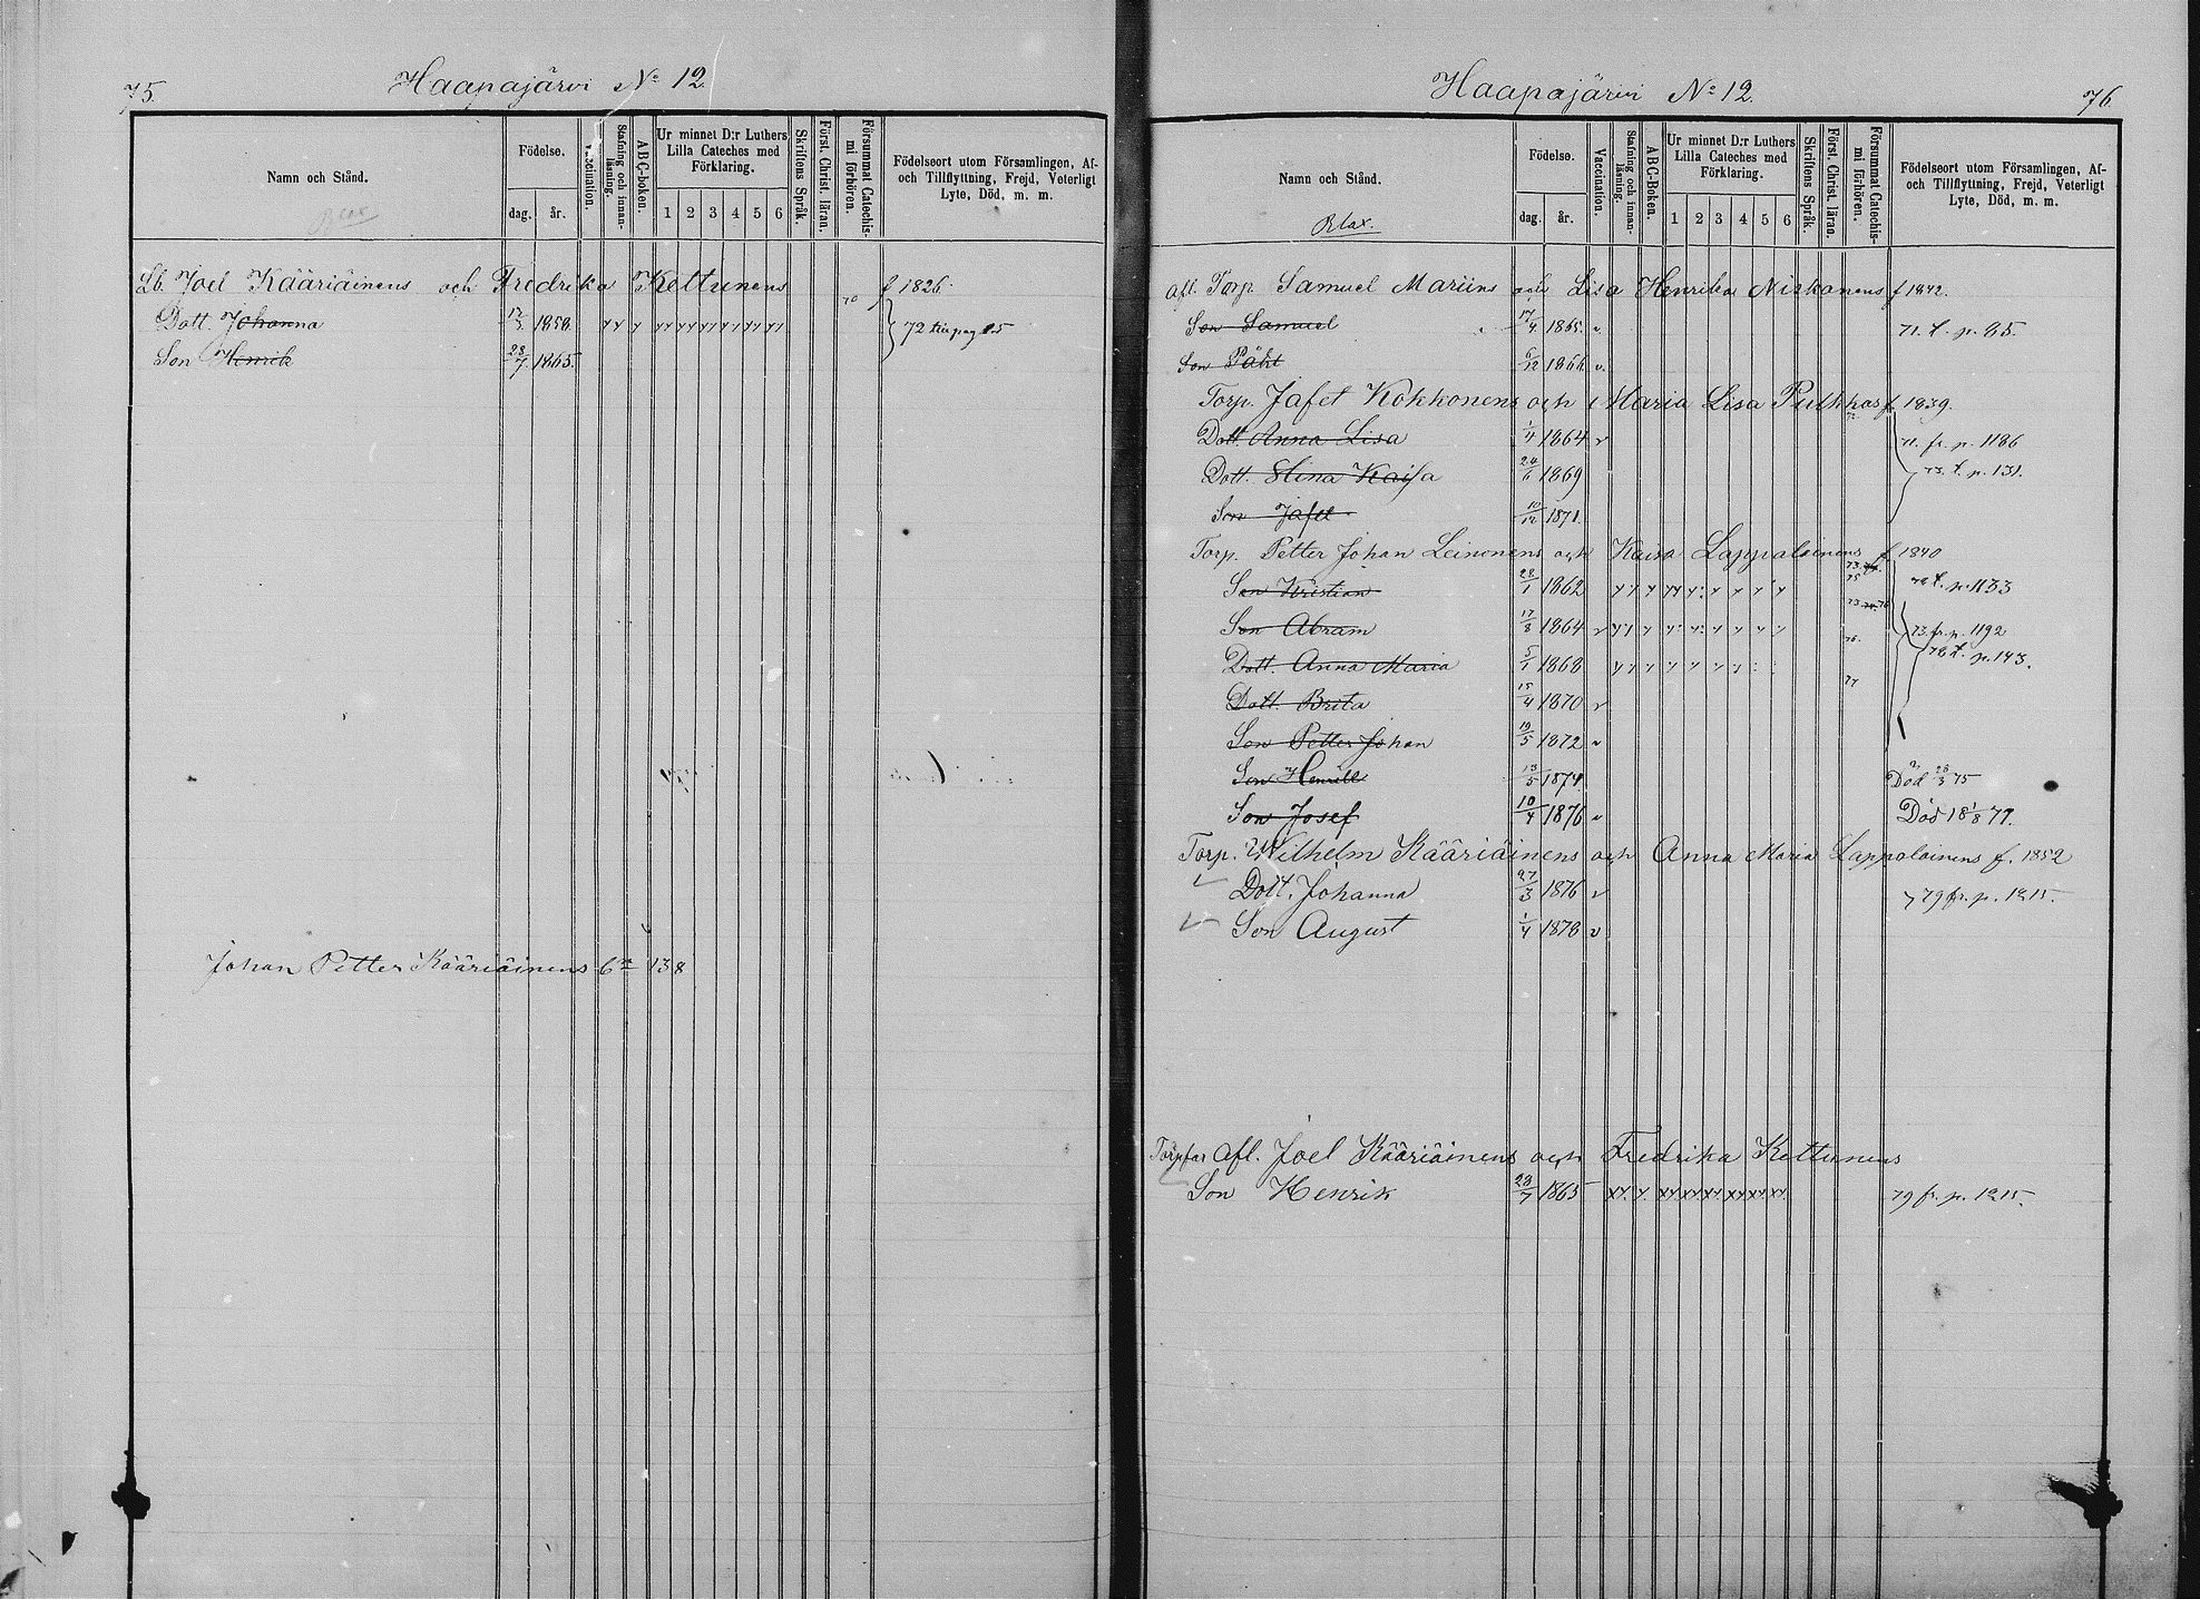 75.
Haapajärvi No 12.
Namn och Stånd.
Födelse.
dag. år.
Vaccination.
Stafning och innanläsning.
ABC-boken.
Ur minnet D:r Luthers Lilla Cateches med Förklaring.
1 2 3 4 5 6
Skriftens Språk.
Först. Christ. läran.
Försummat Catechismi förhören.
Födelseort utom Församlingen, Af- och Tillflyttning, Frejd, Veterligt Lyte, Död, m. m.
Lb. Joel Kääriäinens och Fredrika Kettunens f 1826.
Dott. Johanna 12/3 1858. 70 72 till pag 85
Son Henrik 28/7 1865.
Johan Petter Kääriäinens 138
Haapajärvi No 12.
76.
Namn och Stånd.
Födelse.
dag. år.
Vaccination.
Stafning och innanläsning.
ABC-Boken.
Ur minnet D:r Luthers Lilla Cateches med Förklaring.
1 2 3 4 5 6
Skriftens Språk.
Först. Christ. läran.
Försummat Catechismi förhören.
Födelseort utom Församlingen, Af- och Tillflyttning, Frejd, Veterligt Lyte, Död, m. m.
afl. Torp. Samuel Mariins och Lisa Henrika Niskanens f 1842.
Son Samuel 17/4 1865. v 71. t. p. 85.
Son 6/12 1866 v.
Torp. Jafet Kokkonens och Maria Lisa f 1839.
Dott. Anna Lisa 1/4 1864 v 71. fr. p. 1186
Dott. Stina Kaisa 24/6 1869 73. t. p. 131.
Son Jafet 10/12 1871.
Torp. Petter Johan Leinonens och Kaisa Lappalainens f 1840
Son Kristian 28/1 1862 78 t. p. 1133
Son Abram 17/8 1864 v 73. fr. p. 1192
Dott. Anna Maria 5/1 1868 78 t. p. 143.
Dott. Brita 15/4 1870 v 77
Son Petter Johan 19/5 1872 v
Son Henrik 13/5 1874. Död 28/3 75
Son Josef 10/4 1876 v Död 18 1/8 77.
Torp. Wilhelm Kääriäinens och Anna Maria Lappalainens f. 1852
Dott. Johanna 27/3 1876 v 79 fr. p. 1215.
Son August 1/4 1878 v
Torpar afl. Joel Kääriäinens och Fredrika Kettunens
Son Henrik 28/7 1865 79 fr. p. 1215.